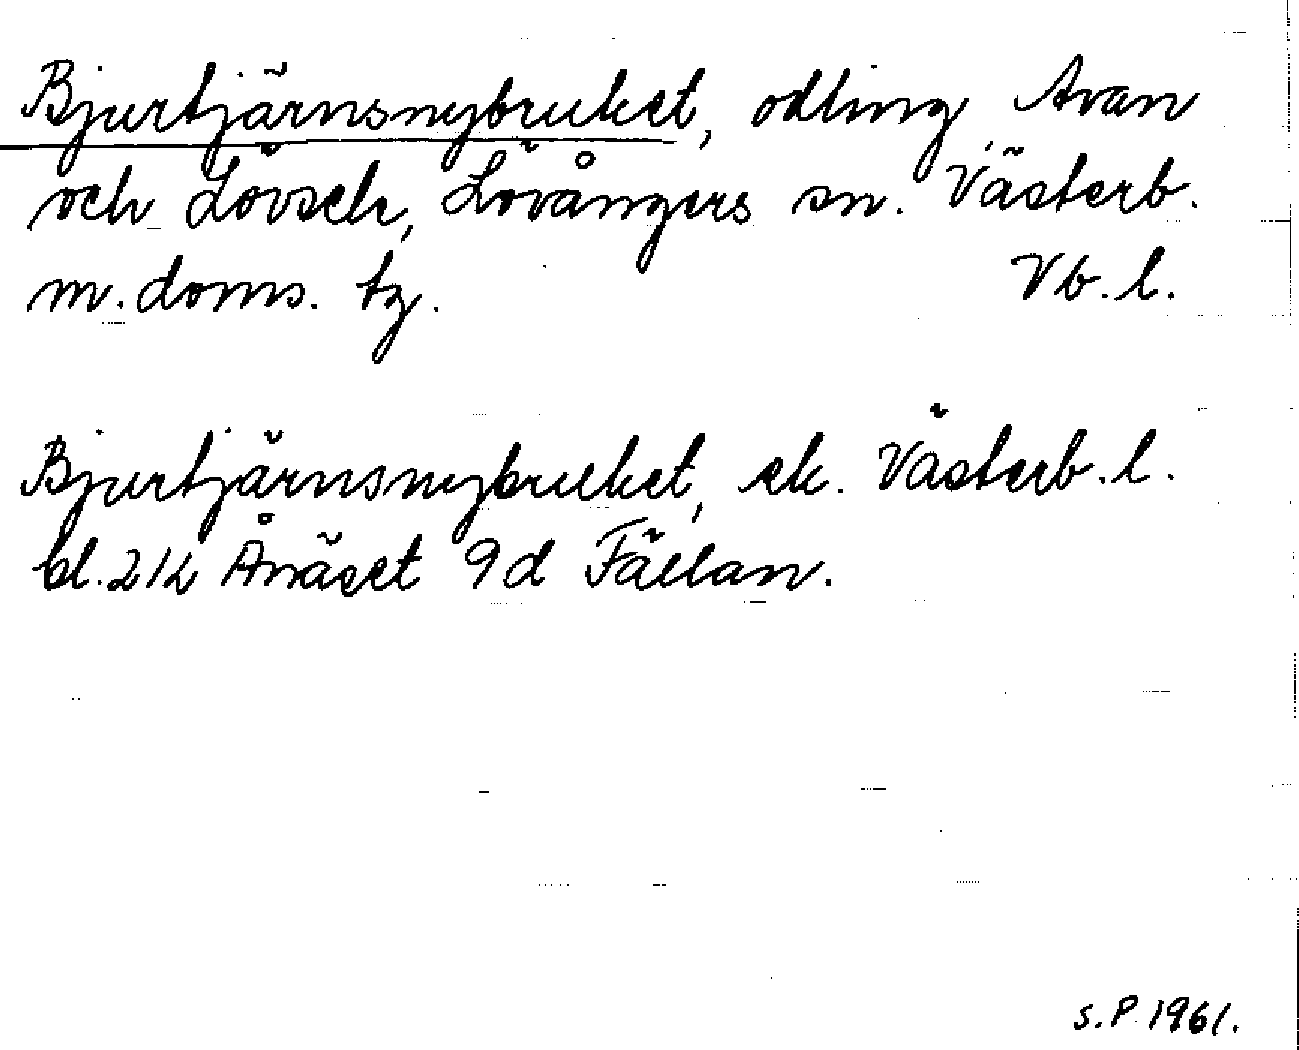 Bjurtjärnsnybruket, odling Avan
och Lövsele, Lövångers sn. Västerb.
m. doms. tg. Vb. l.
Bjurtjärnsnybruket, ek. Västerb. l.
bl. 21L Ånäset 9d Fällan.
s. P 1961.